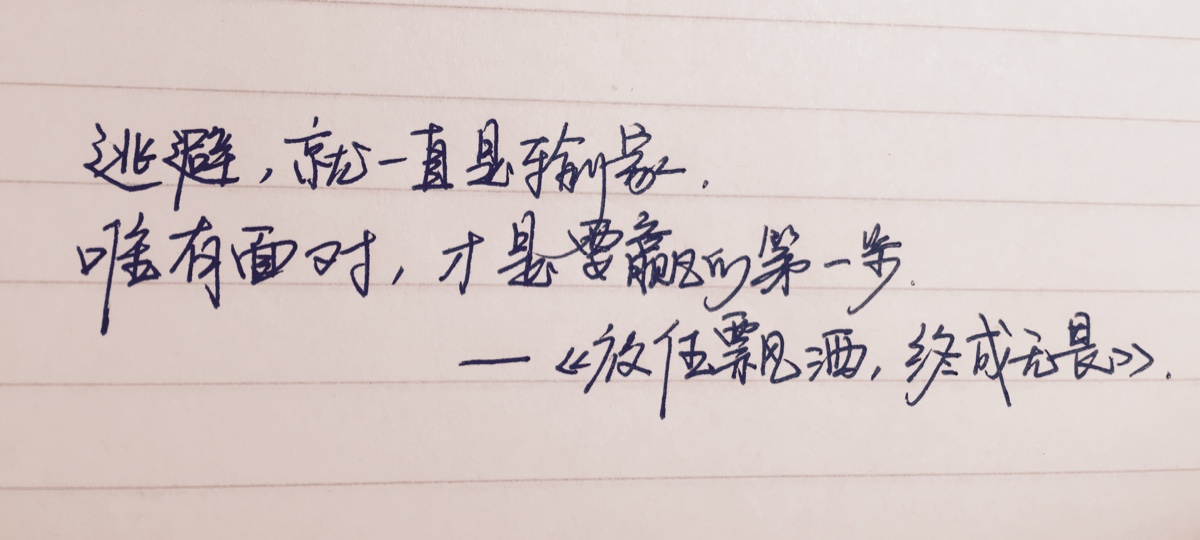 逃避,就一直是输家.
唯有面对,才是要赢的第一步.
—《放任飘洒,终成无畏》.